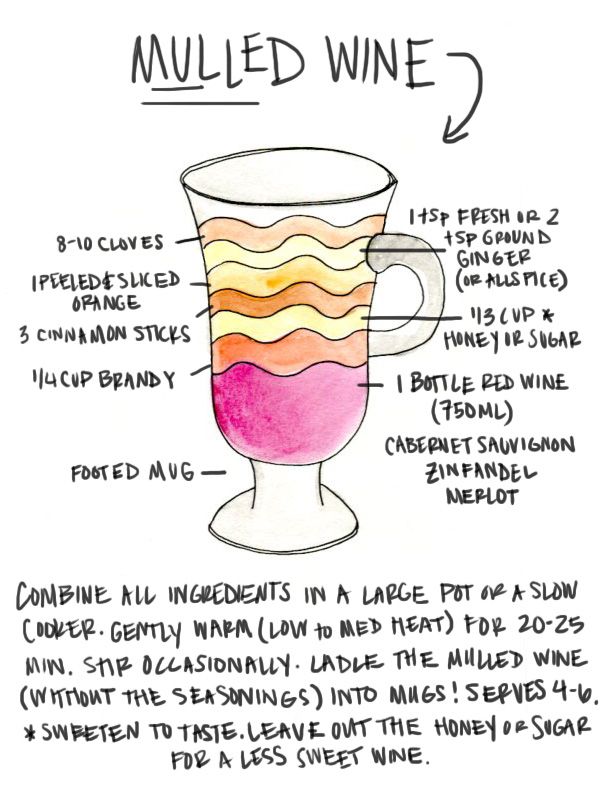 MULLED WINE
8-10 CLOVES
1 PEELED & SLICED
ORANGE
3 CINNAMON STICKS
1/4 CUP BRANDY
FOOTED MUG
1 tSP FRESH OR 2
tSP GROUND
GINGER
(OR ALLSPICE)
1/3 CUP *
HONEY OR SUGAR
1 BOTTLE RED WINE
(750ML)
CABERNET SAUVIGNON
ZINFANDEL
MERLOT
COMBINE ALL INGREDIENTS IN A LARGE POT OR A SLOW
COOKER. GENTLY WARM (LOW to MED HEAT) FOR 20-25
MIN. STIR OCCASIONALLY. LADLE THE MULLED WINE
(WITHOUT THE SEASONINGS) INTO MUGS! SERVES 4-6.
* SWEETEN TO TASTE. LEAVE OUT THE HONEY OR SUGAR
FOR A LESS SWEET WINE.